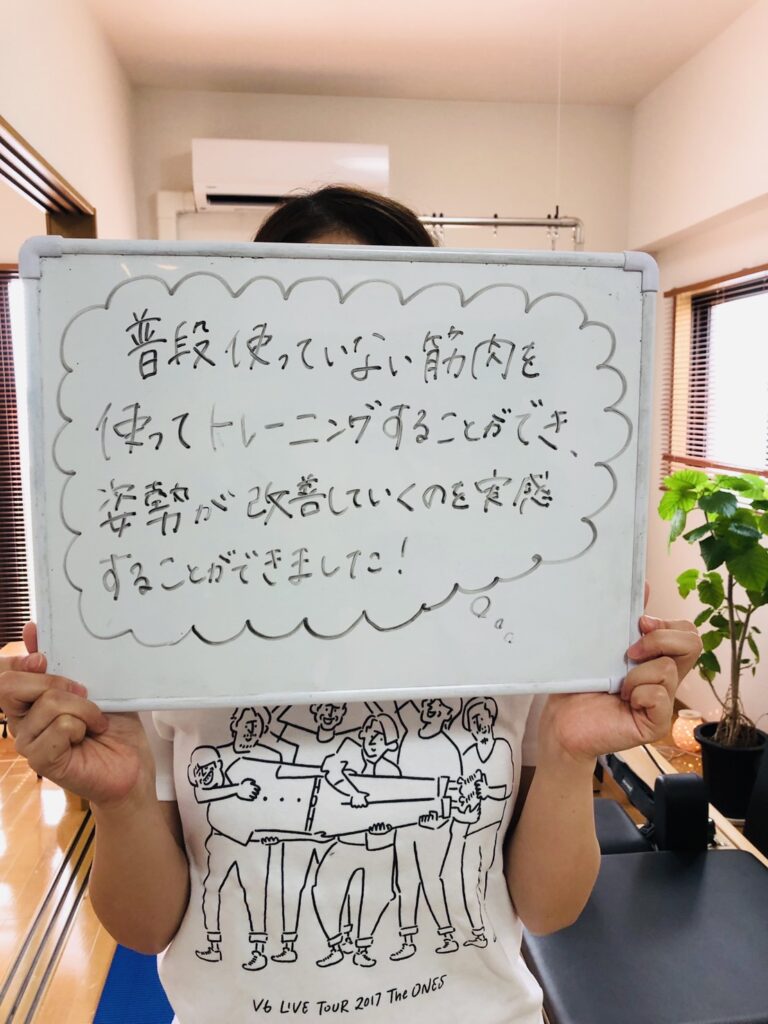 普段使っていない筋肉を
使ってトレーニングすることができ、
姿勢が改善していくのを実感
することができました!
V6 LIVE TOUR 2017 The ONES